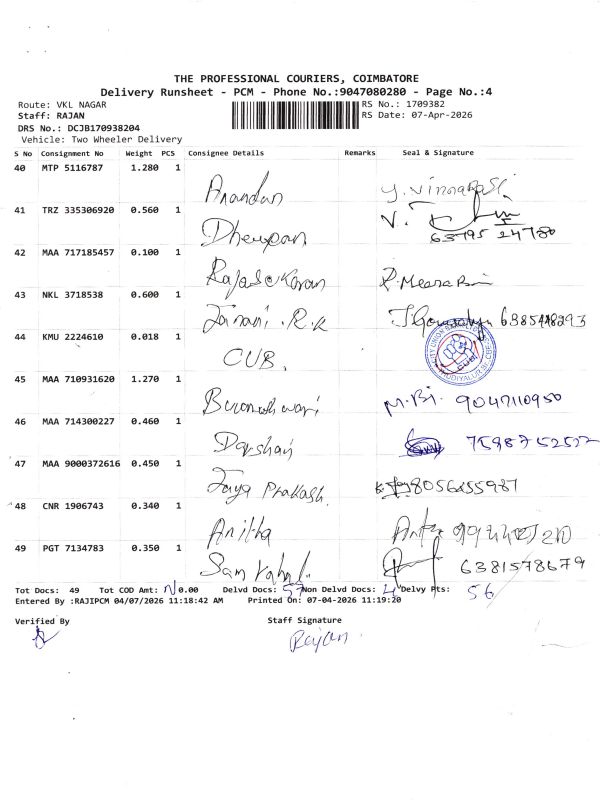 THE PROFESSIONAL COURIERS, COIMBATORE
Delivery Runsheet - PCM - Phone No.:9047080280 - Page No.:4
Route: VKL NAGAR RS No.: 1709382
Staff: RAJAN RS Date: 07-Apr-2026
DRS No.: DCJB170938204
Vehicle: Two Wheeler Delivery
S No Consignment No Weight PCS Consignee Details Remarks Seal & Signature
40 MTP 5116787 1.280 1
Anandan
41 TRZ 335306920 0.560 1
63795 24780
42 MAA 717185457 0.100 1
Rajasekaran
43 NKL 3718538 0.600 1
Janani. R.R
44 KMU 2224610 0.018 1
CUB.
45 MAA 710931620 1.270 1
M.Bi. 9047110950
46 MAA 714300227 0.460 1
Darshan
47 MAA 9000372616 0.450 1
Jaya Prakash
48 CNR 1906743 0.340 1
Anitha
49 PGT 7134783 0.350 1
6381578679
Tot Docs: 49 Tot COD Amt: 0.00 Delvd Docs: 57 Non Delvd Docs: Delvy Pts: 56
Entered By :RAJIPCM 04/07/2026 11:18:42 AM Printed On: 07-04-2026 11:19:20
Verified By Staff Signature
Rajan